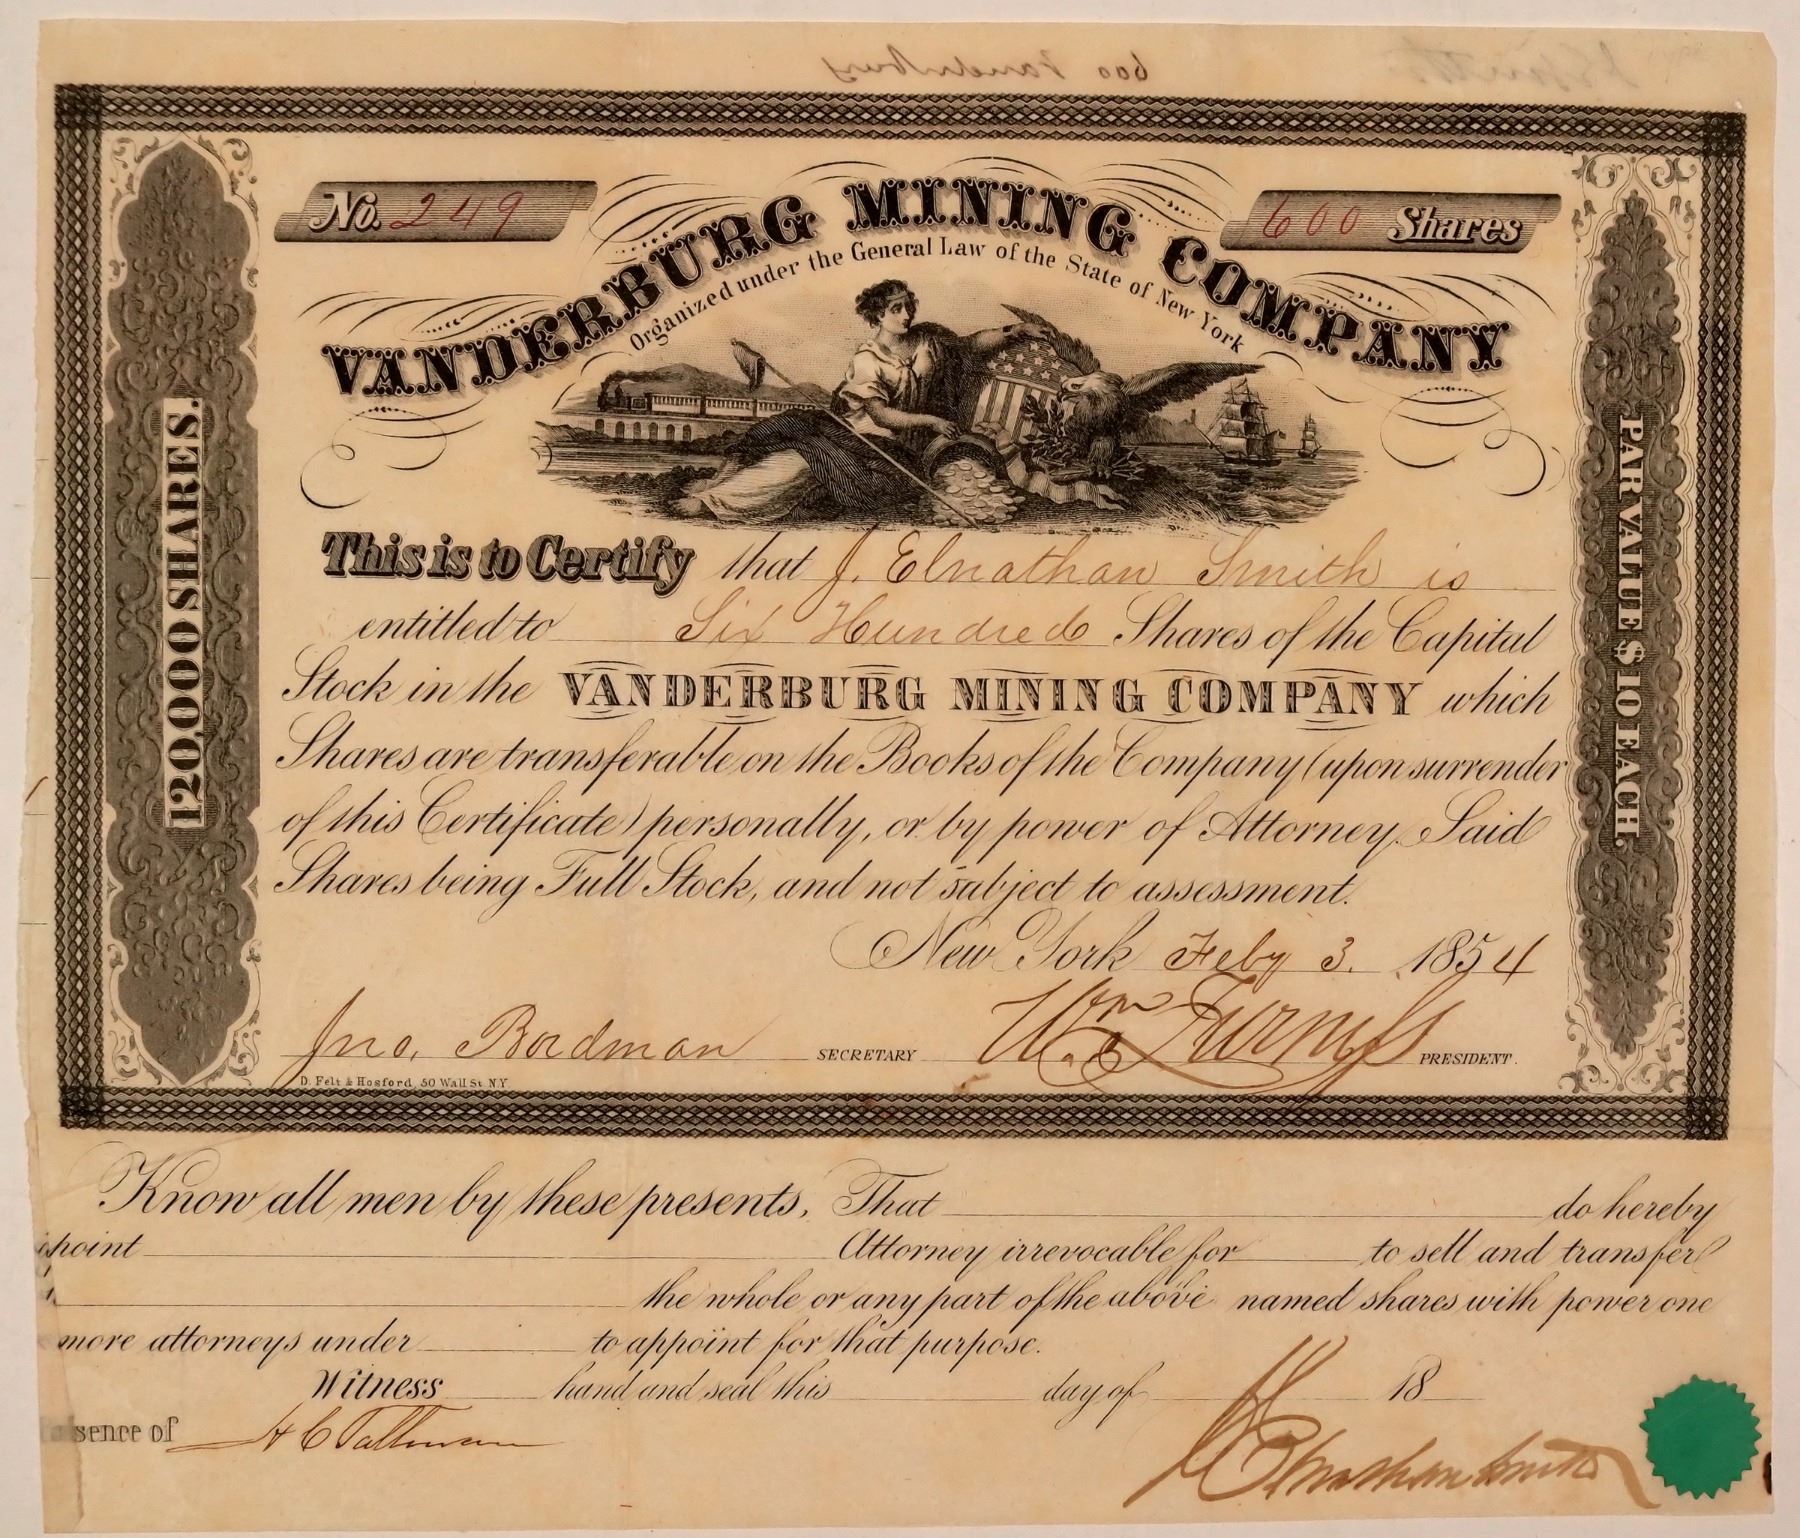 600 Vanderburg
No. 249
600 Shares
VANDERBURG MINING COMPANY
Organized under the General Law of the State of New York
120,000 SHARES.
PAR VALUE $10 EACH.
This is to Certify that J. Elnathan Smith is
entitled to Six Hundred Shares of the Capital
Stock in the VANDERBURG MINING COMPANY which
Shares are transferable on the Books of the Company (upon surrender
of this Certificate) personally, or by power of Attorney. Said
Shares being Full Stock, and not subject to assessment.
New York Feby 3. 1854
Jno. Bordman SECRETARY Wm. Furniss PRESIDENT.
D. Felt & Hosford, 50 Wall St. N.Y
Know all men by these presents, That do hereby
point Attorney irrevocable for to sell and transfer
the whole or any part of the above named shares with power one
more attorneys under to appoint for that purpose.
Witness hand and seal this day of 18
sence of H C Tallman
J Elnathan Smith